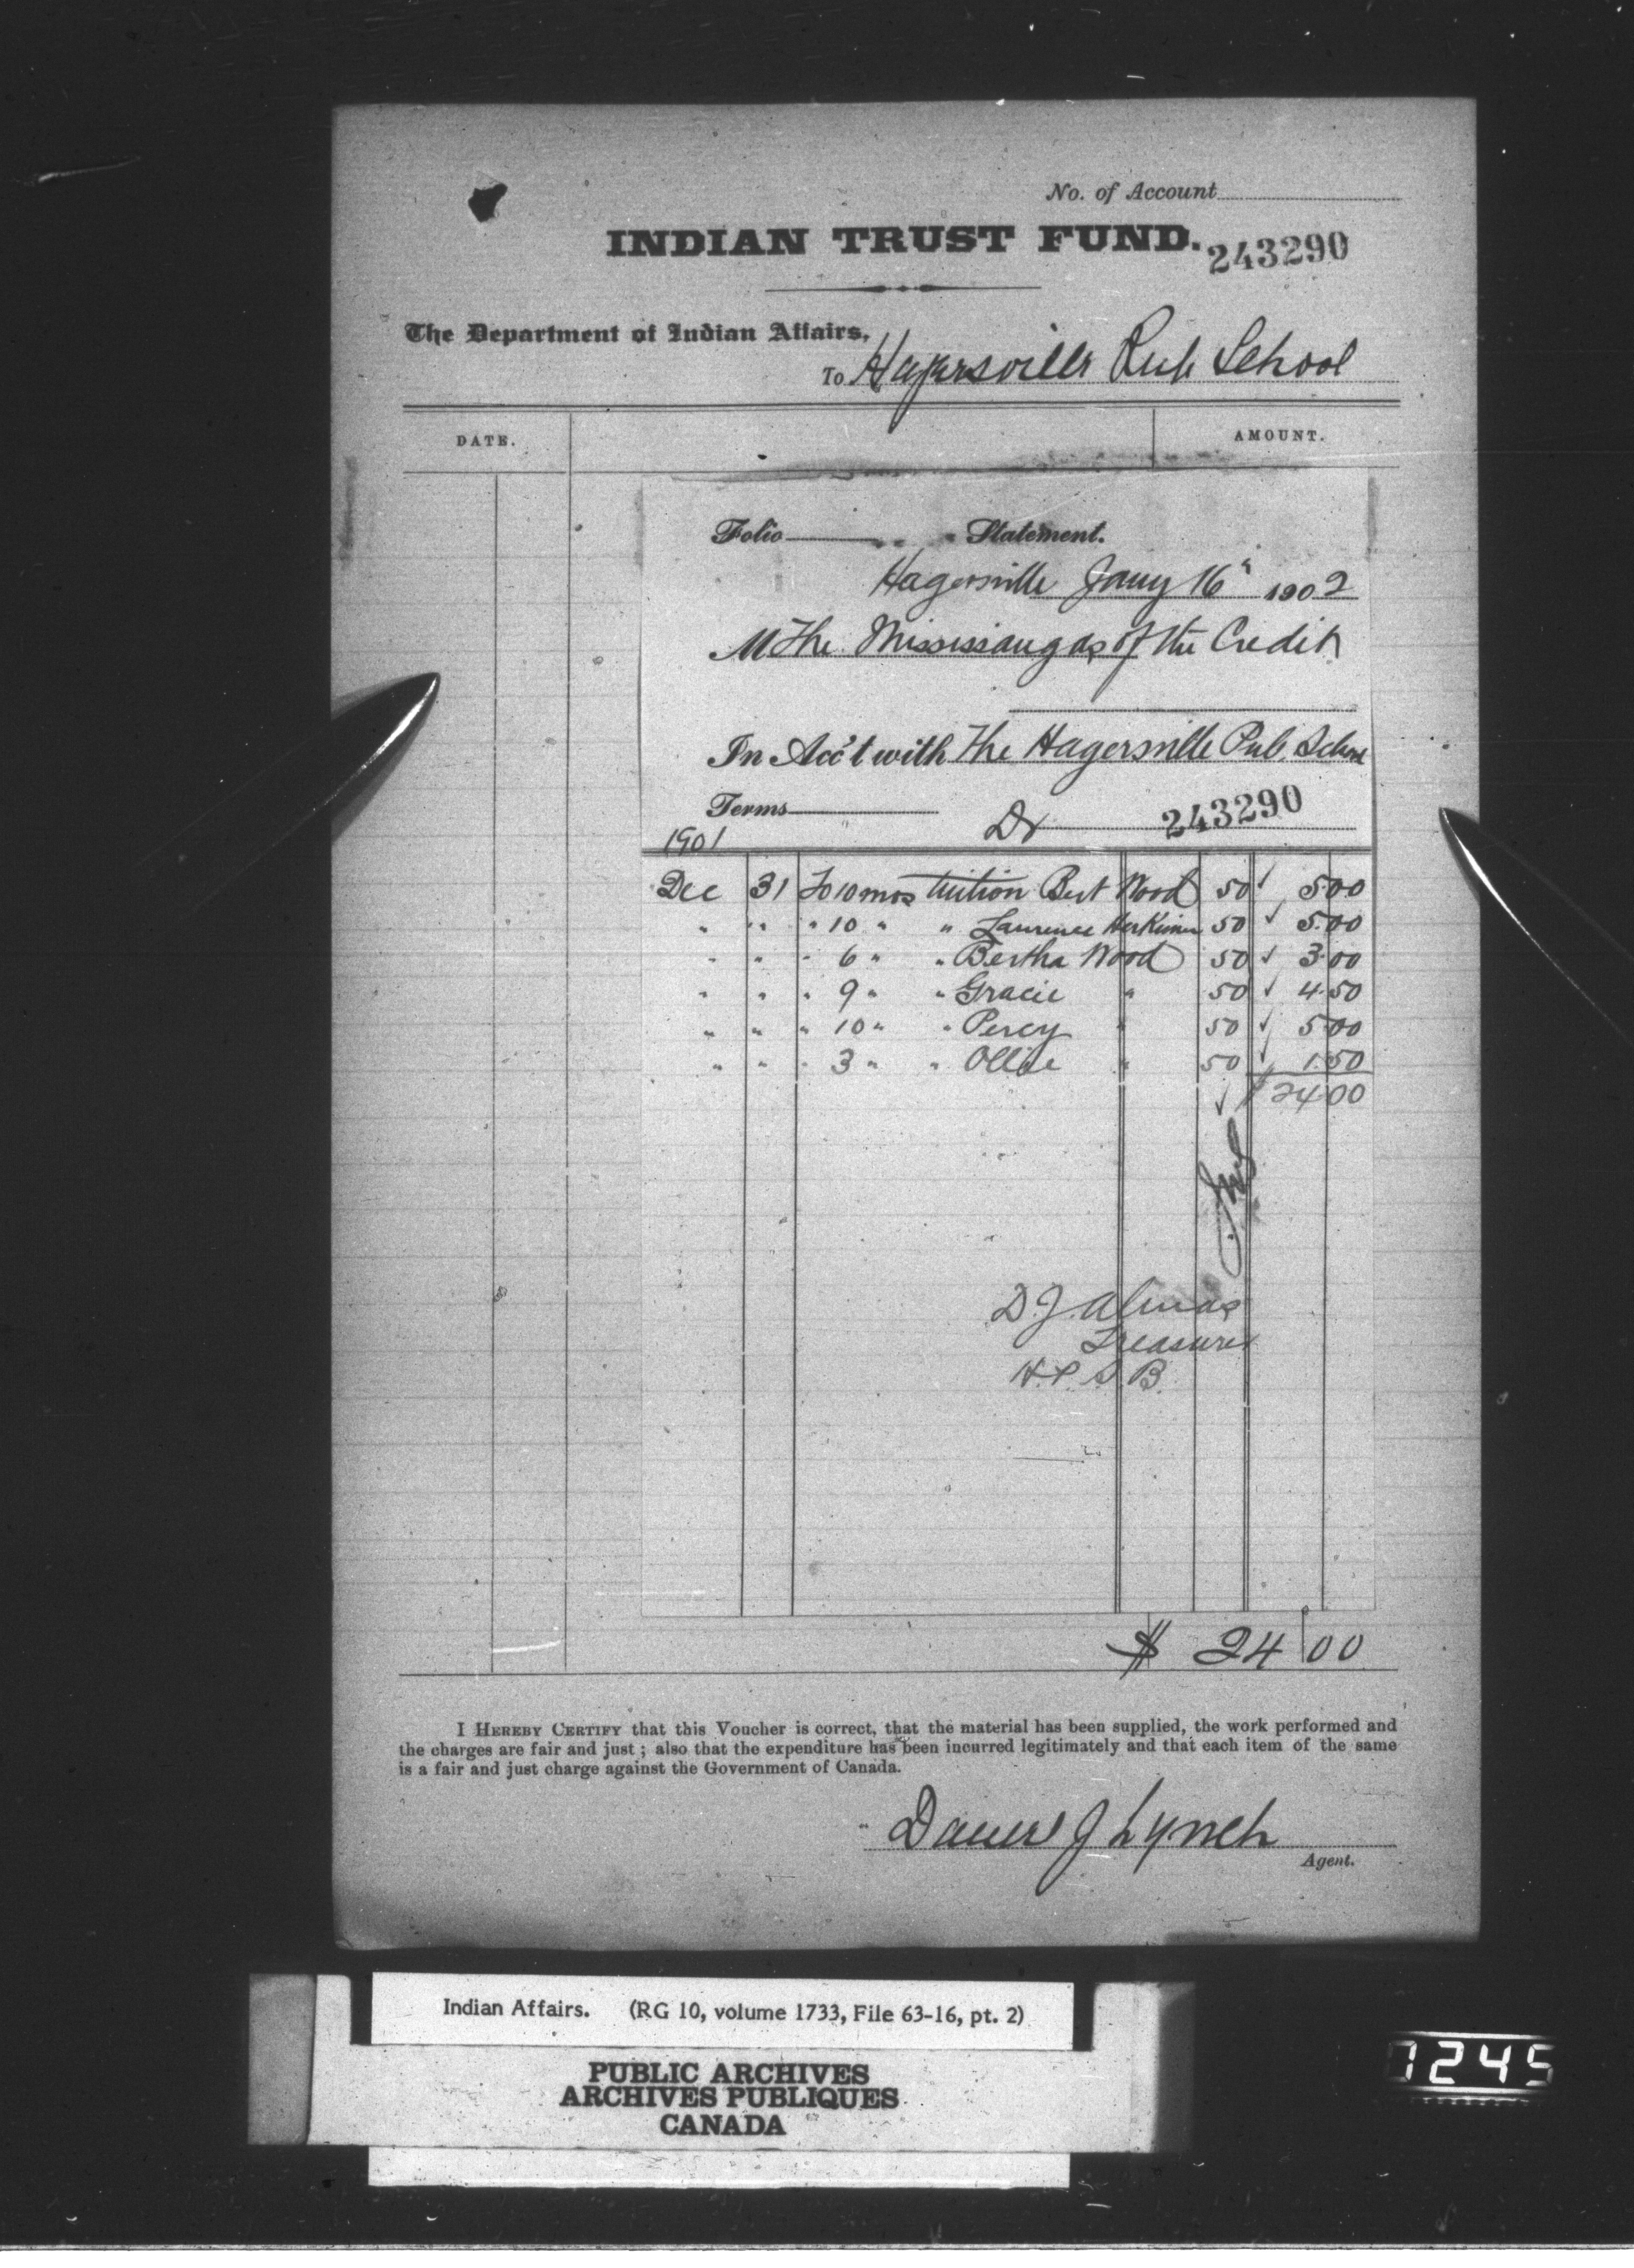 No. of Account
INDIAN TRUST FUND.
243290
The Department of Indian Affairs,
To Hagersville Pub School
DATE. AMOUNT.
Folio Statement.
Hagersville Jany 16" 1902
M The Mississaugas of the Credit
In Acc't with The Hagersville Pub. School
Terms Dr 243290
1901
Dec 31 To 10 mos Tuition Bert Wood 50 ✓ 5.00
" " " 10 " " Laurence Herkimer 50 ✓ 5.00
" " " 6 " " Bertha Wood 50 ✓ 3.00
" " " 9 " " Gracie " 50 ✓ 4.50
" " " 10 " " Percy " 50 ✓ 5.00
" " " 3 " " Ollie " 50 ✓ 1.50
✓ $ 24.00
D. J. Almas
Treasurer
H. P. S. B.
$ 24 00
I HEREBY CERTIFY that this Voucher is correct, that the material has been supplied, the work performed and
the charges are fair and just ; also that the expenditure has been incurred legitimately and that each item of the same
is a fair and just charge against the Government of Canada.
J Lynch
Agent.
Indian Affairs. (RG 10, volume 1733, File 63-16, pt. 2)
PUBLIC ARCHIVES
ARCHIVES PUBLIQUES
CANADA
1245